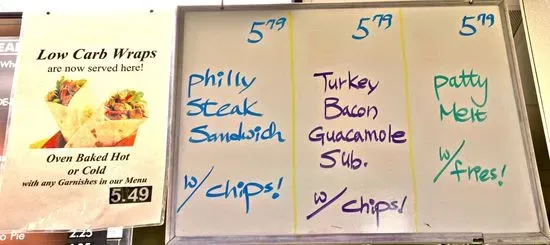 Low Carb Wraps
are now served here!
Oven Baked Hot
or Cold
with any Garnishes in our Menu
5.49
5.79
philly
Steak
Sandwich
w/ chips!
5.79
Turkey
Bacon
Guacamole
Sub.
w/ chips!
5.79
patty
Melt
w/ fries!
o Pie
2.25